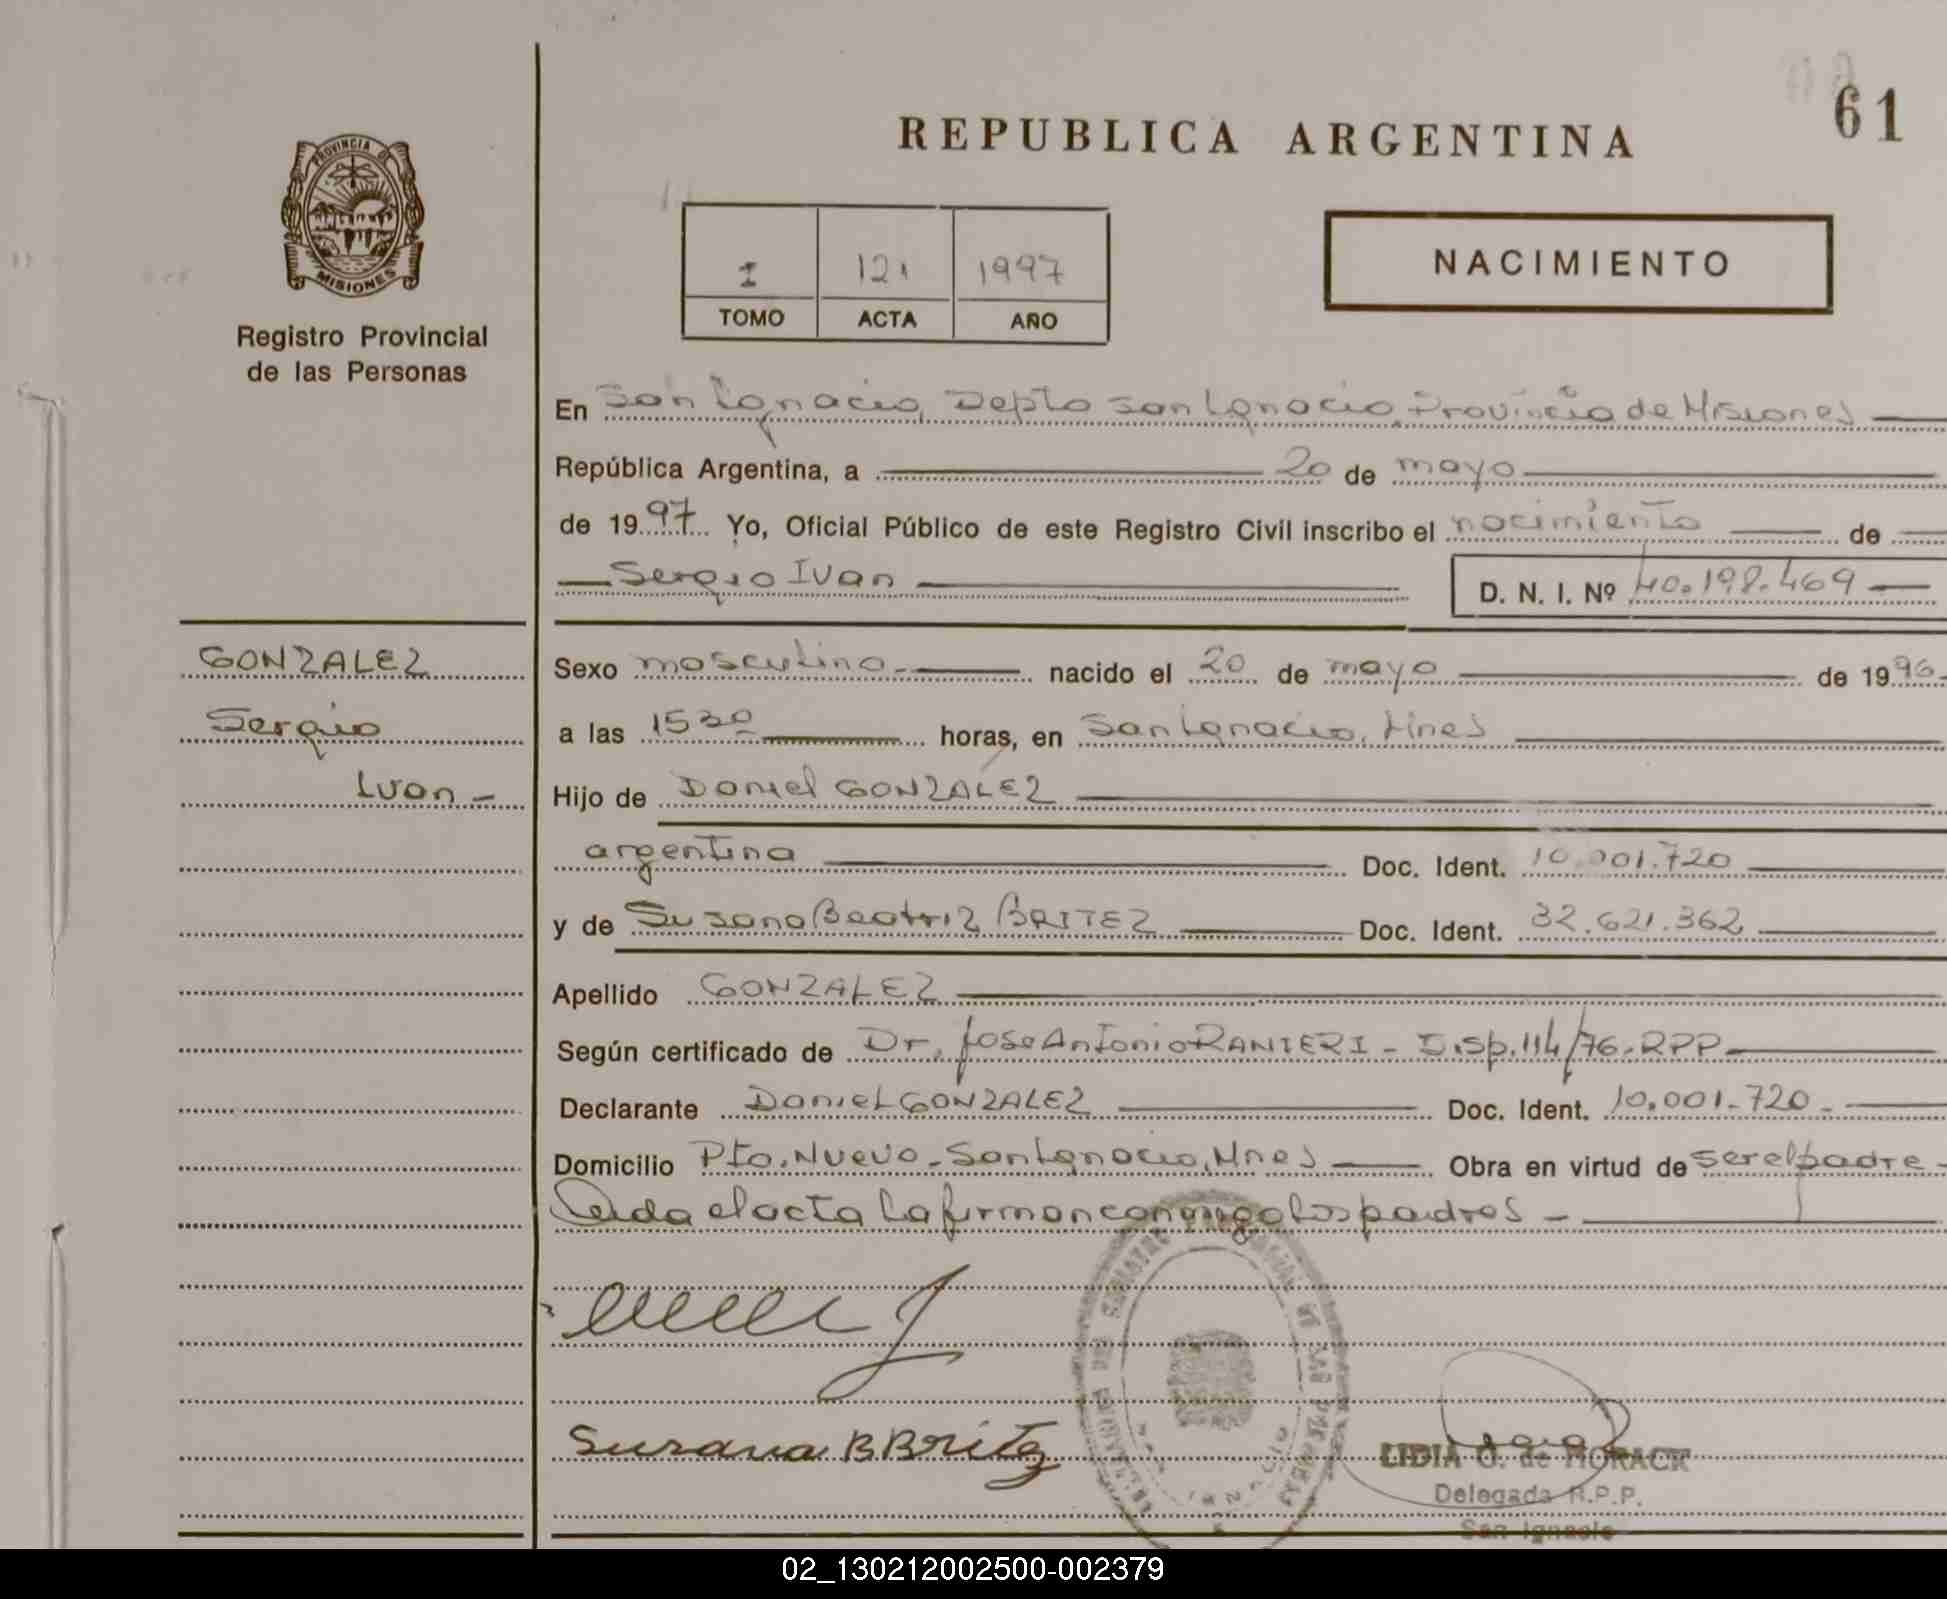 61
REPUBLICA ARGENTINA
PROVINCIA DE
MISIONES
Registro Provincial
de las Personas
I 121 1997
TOMO ACTA AÑO
NACIMIENTO
En San Ignacio, Depto San Ignacio, Provincia de Misiones
República Argentina, a 20 de mayo
de 1997 Yo, Oficial Público de este Registro Civil inscribo el nacimiento de
Sergio Ivan
D. N. I. Nº 40.198.469
GONZALEZ
Sergio
Ivan -
Sexo masculino nacido el 20 de mayo de 1996
a las 15 30 horas, en San Ignacio, Mnes
Hijo de Daniel GONZALEZ
argentina Doc. Ident. 10.001.720
y de Susana Beatriz BRITEZ Doc. Ident. 32.621.362
Apellido GONZALEZ
Según certificado de Dr. Jose Antonio RANIERI - Disp. 114/76. RPP
Declarante Daniel GONZALEZ Doc. Ident. 10.001.720
Domicilio Pto. Nuevo - San Ignacio, Mnes Obra en virtud de ser el padre
Leida el acta la firman conmigo los padres -
Susana B Britez
LIDIA O. de HORACK
Delegada R.P.P.
San Ignacio
02_130212002500-002379